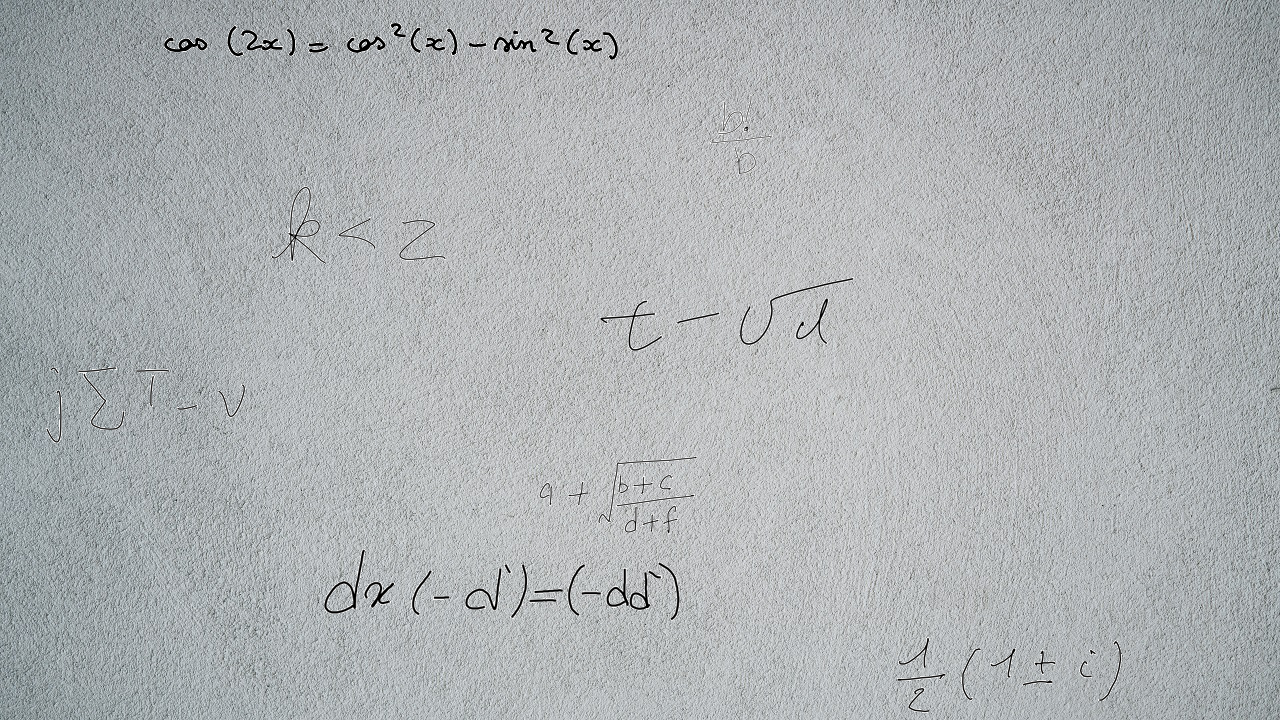 cos (2x) = cos²(x) - sin²(x)
b!/D
k < z
t - √d
j ∑ T - v
a + √((b+c)/(d+f))
dx (-d`) = (-dd`)
1/2 (1 ± i)